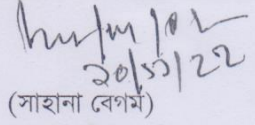 ২০/১০/২২
(সাহানা বেগম)